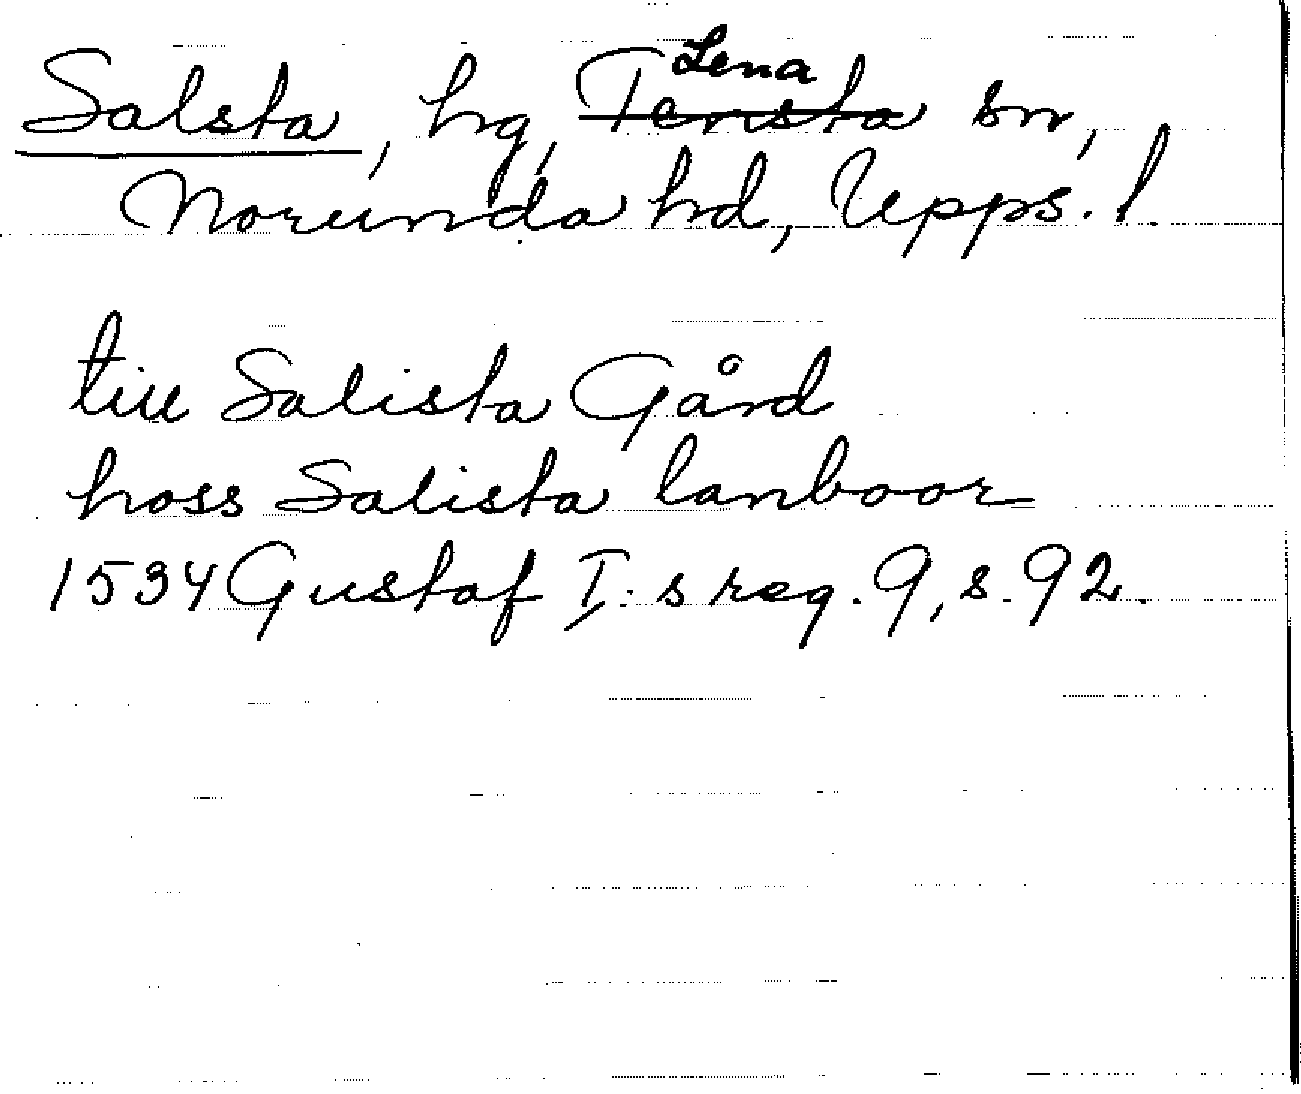 Salsta, hg, Tensta Lena sn,
Norunda hd, Upps. l.
till Salista Gård
hoss Salista lanboor
1534 Gustaf I:s reg. 9, s. 92.